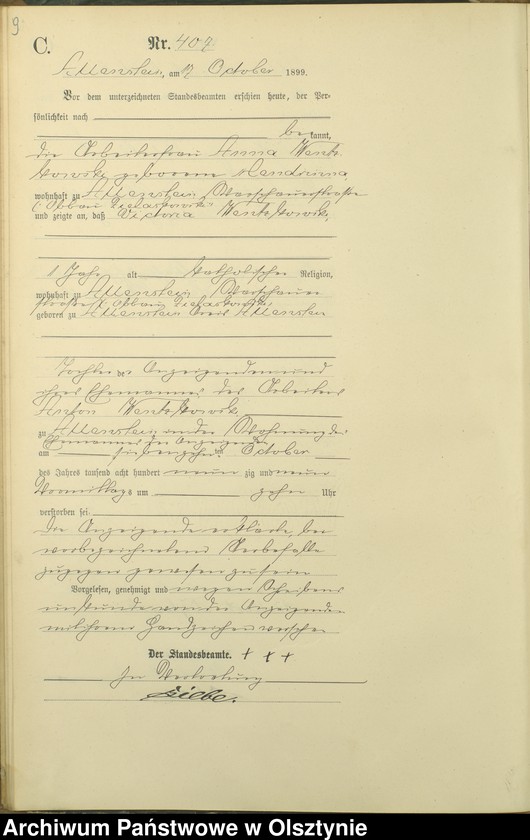 9
C.
Nr. 407.
Allenstein, am 17 October 1899.
Vor dem unterzeichneten Standesbeamten erschien heute, der Per-
sönlichkeit nach
bekannt,
die Arbeiterfrau Anna
geborene
wohnhaft zu Allenstein, Warschauerstraße
Abbau
und zeigte an, daß Victoria
1 Jahr alt katholischer Religion,
wohnhaft zu Allenstein Warschauer
straße Abbau
geboren zu Allenstein Kreis Allenstein
Tochter der Anzeigenden und
ihres Ehemannes, des Arbeiters
Anton
zu Allenstein in der Wohnung des
Ehemannes der Anzeigenden
am siebenzehnten October
des Jahres tausend acht hundert neunzig und neun
Vormittags um zehn Uhr
verstorben sei.
Die Anzeigende erklärte, bei
vorbezeichnetem Sterbefalle
zugegen gewesen zu sein
Vorgelesen, genehmigt und wegen Schreibens
unkunde von der Anzeigenden
mit ihrem Handzeichen versehen
Der Standesbeamte. + + +
In Vertretung
Archiwum Państwowe w Olsztynie